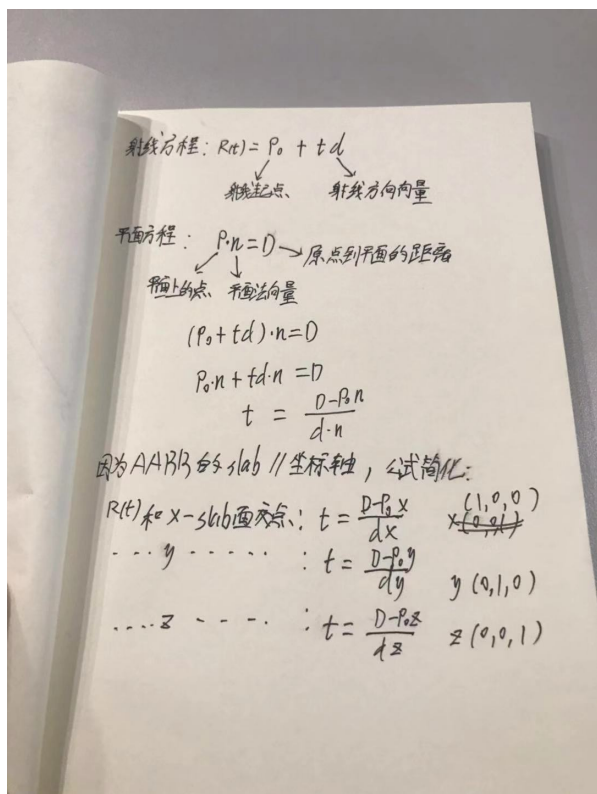 射线方程: R(t) = P₀ + td
射线起点 射线方向向量
平面方程: P·n = D → 原点到平面的距离
平面上的点 平面法向量
(P₀+td)·n=D
P₀·n + td·n = D
t = \frac{D-P₀·n}{d·n}
因为AABB的slab // 坐标轴, 公式简化:
R(t)和X-slab面交点: t = \frac{D-P₀x}{dx} x (1,0,0)
····y ····· : t = \frac{D-P₀y}{dy} y (0,1,0)
····z ···· : t = \frac{D-P₀z}{dz} z (0,0,1)